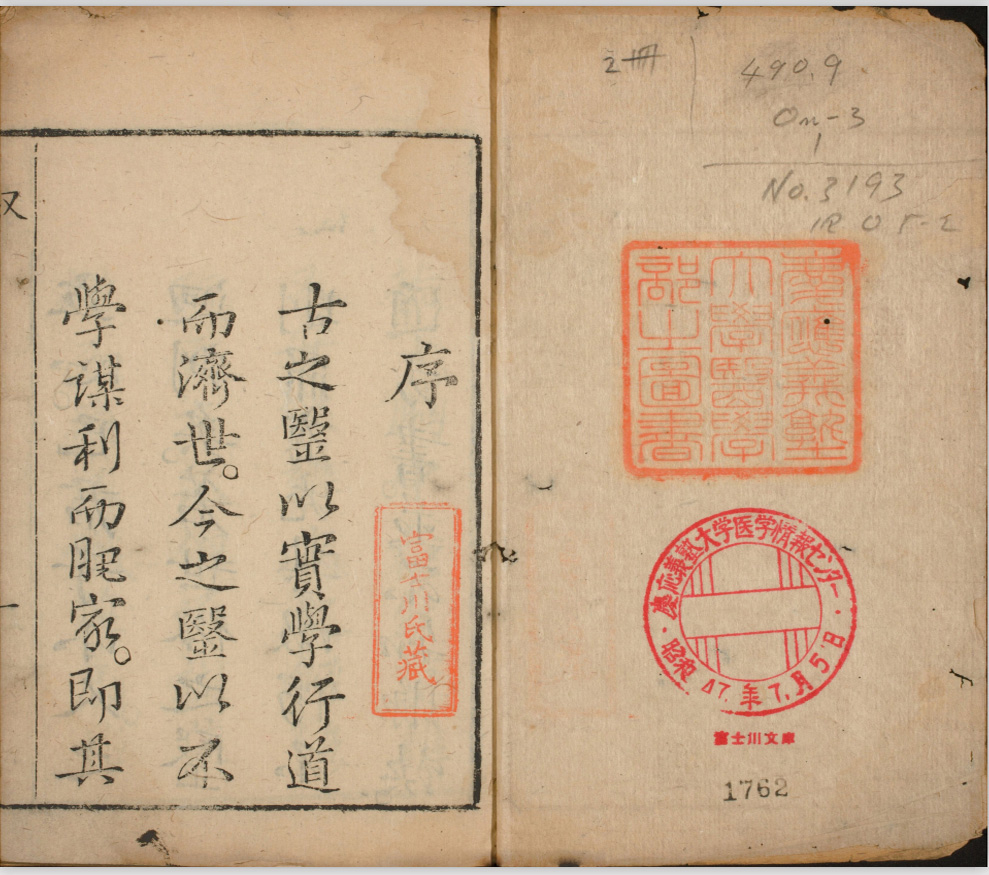 2冊
490.9
On-3
1
No.3193
慶應義塾
大學醫學
部之圖書
慶応義塾大学医学情報センター
昭和47.年7.月5日
富士川文庫
1762
序
富士川氏藏
古之毉以實學行道
而濟世。今之毉以不
學謀利而肥家。即其